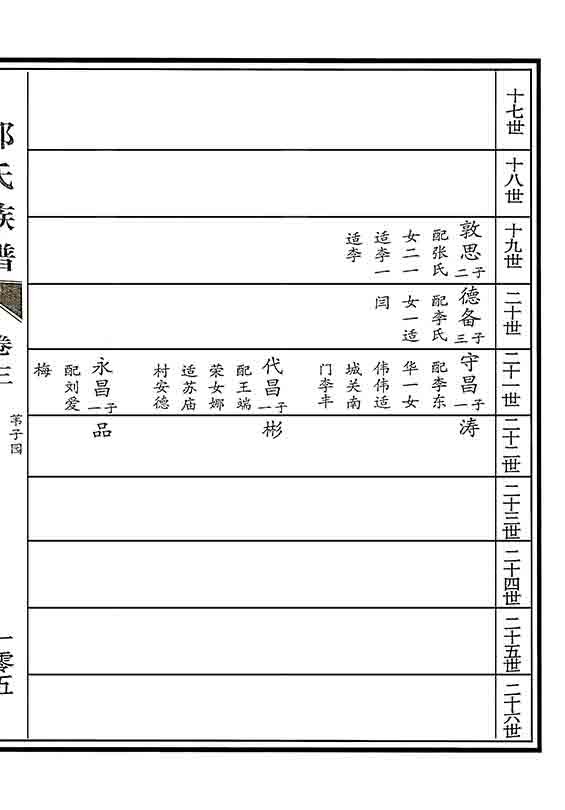 十七世
十八世
十九世
敦思二子
配张氏
女二一
适李一
适李
二十世
德备三子
配李氏
女一适
闫
二十一世
守昌一子
配李东
华一女
伟伟适
城关南
门李丰
代昌一子
配王端
荣女娜
适苏庙
村安德
永昌一子
配刘爱
梅
二十二世
涛
彬
品
二十三世
二十四世
二十五世
二十六世
氏族谱
卷三
苇子园
一零五